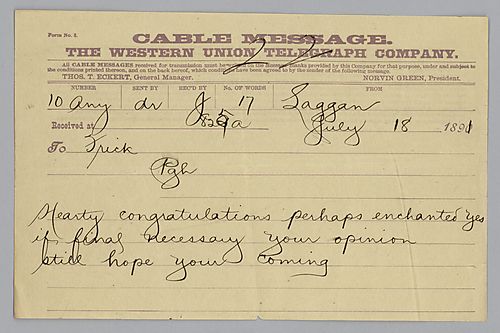 Form No. 2.
CABLE MESSAGE.
22
THE WESTERN UNION TELEGRAPH COMPANY.
All CABLE MESSAGES received for transmission must be written on the Message Blanks provided by this Company for that purpose, under and subject to
the conditions printed thereon, and on the back hereof, which conditions have been agreed to by the sender of the following message.
THOS. T. ECKERT, General Manager. NORVIN GREEN, President.
NUMBER SENT BY REC'D BY No. OF WORDS FROM
10 Any dr J 17 Laggan
Received at 825a July 18 1891
To Frick
Pgh
Hearty congratulations perhaps enchanted yes
if final necessary your opinion
still hope your coming